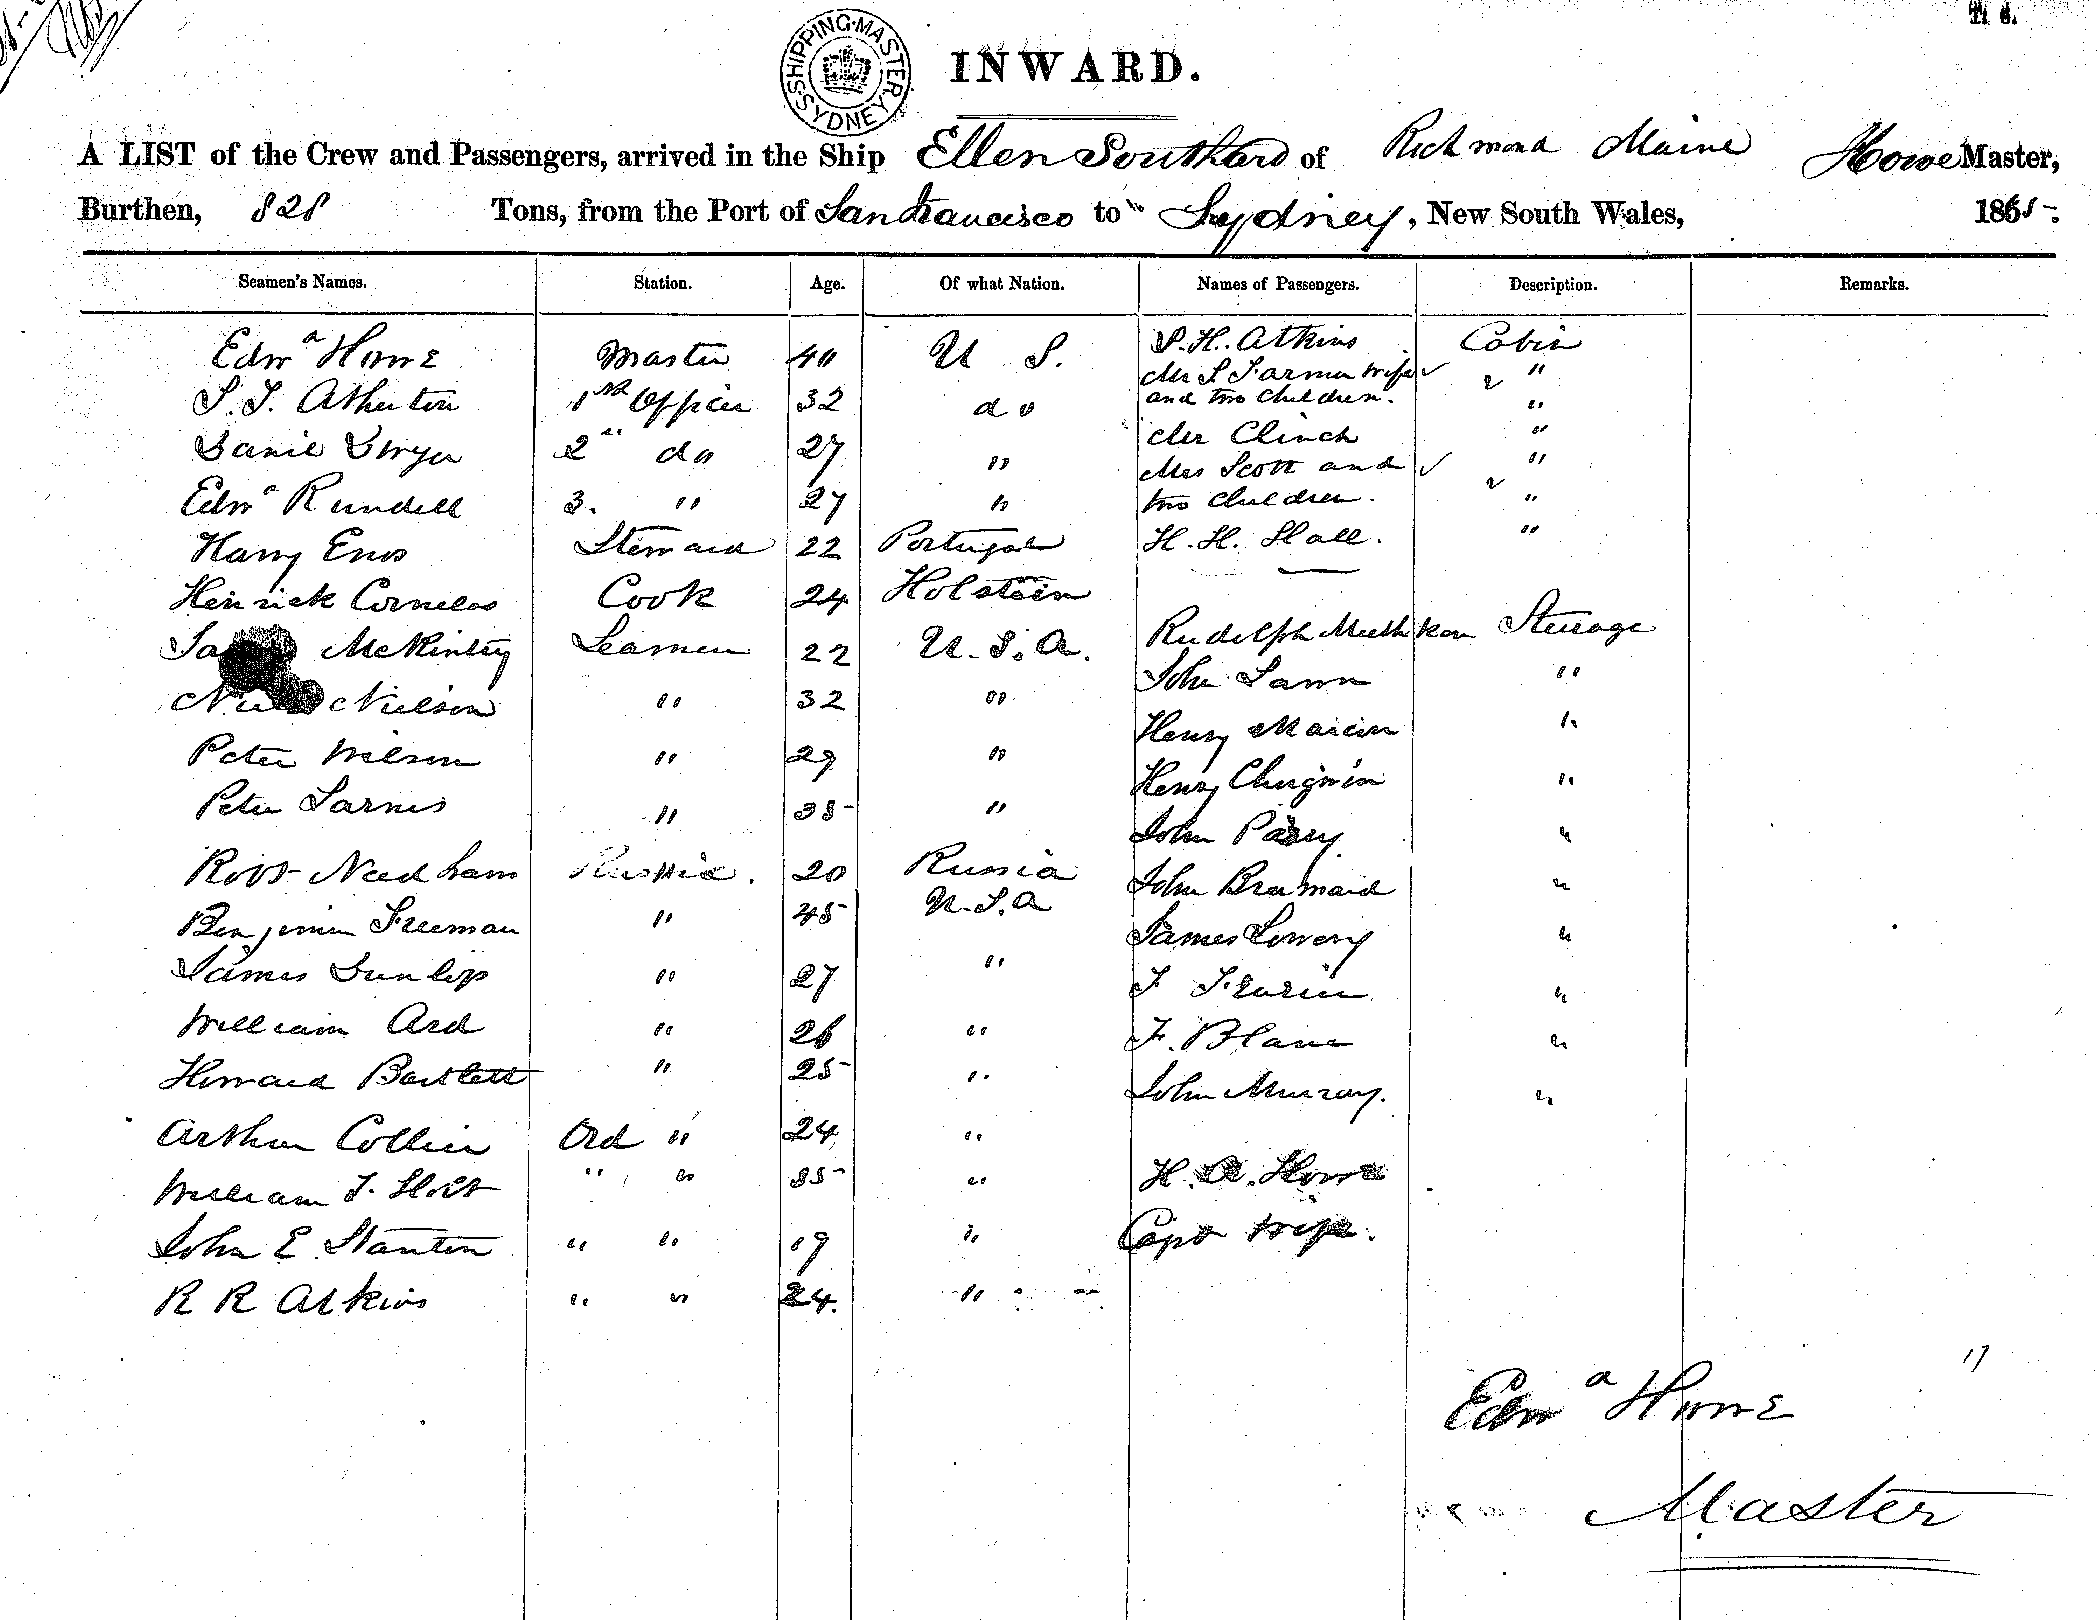 T. d.
SHIPPING MASTER SYDNEY
INWARD.
A LIST of the Crew and Passengers, arrived in the Ship Ellen Southard of Richmond Maine Howe Master,
Burthen, 828 Tons, from the Port of San Francisco to Sydney, New South Wales, 1865.
Seamen's Names. Station. Age. Of what Nation. Names of Passengers. Description. Remarks.
Edwd Howe Master 40 U S. S. H. Atkins Cabin
Mr S Farmer wife "
S. T. Atherton 1st Officer 32 do and two Children. "
Mr Clinch "
Daniel Dwyer 2nd do 27 " Mrs Scott and "
Edwd Rundell 3. " 27 " two Children. "
Harry Enos Steward 22 Portugal H. H. Hall. "
Heinrick Cornelos Cook 24 Holstein
McKinley Seamen 22 U. S. A. Rudolph Steerage
Nielson " 32 " John "
Peter Wilson " 29 " Henry "
Peter " 35 " Henry "
John "
Robt Needham Russia. 20 Russia John "
Benjimin Freeman " 45 U. S. A James Lowery "
James Dunlop " 27 " F "
William Ard " 26 " F. Blane "
Howard Bartlett " 25 " John Murray. "
Arthur Collier Ord " 24 "
William T. Holt " " 35 " H. A. Howe
John E Stanton " " 19 " Capt wife.
R R Atkins " " 24. "
17
Edwd Howe
Master